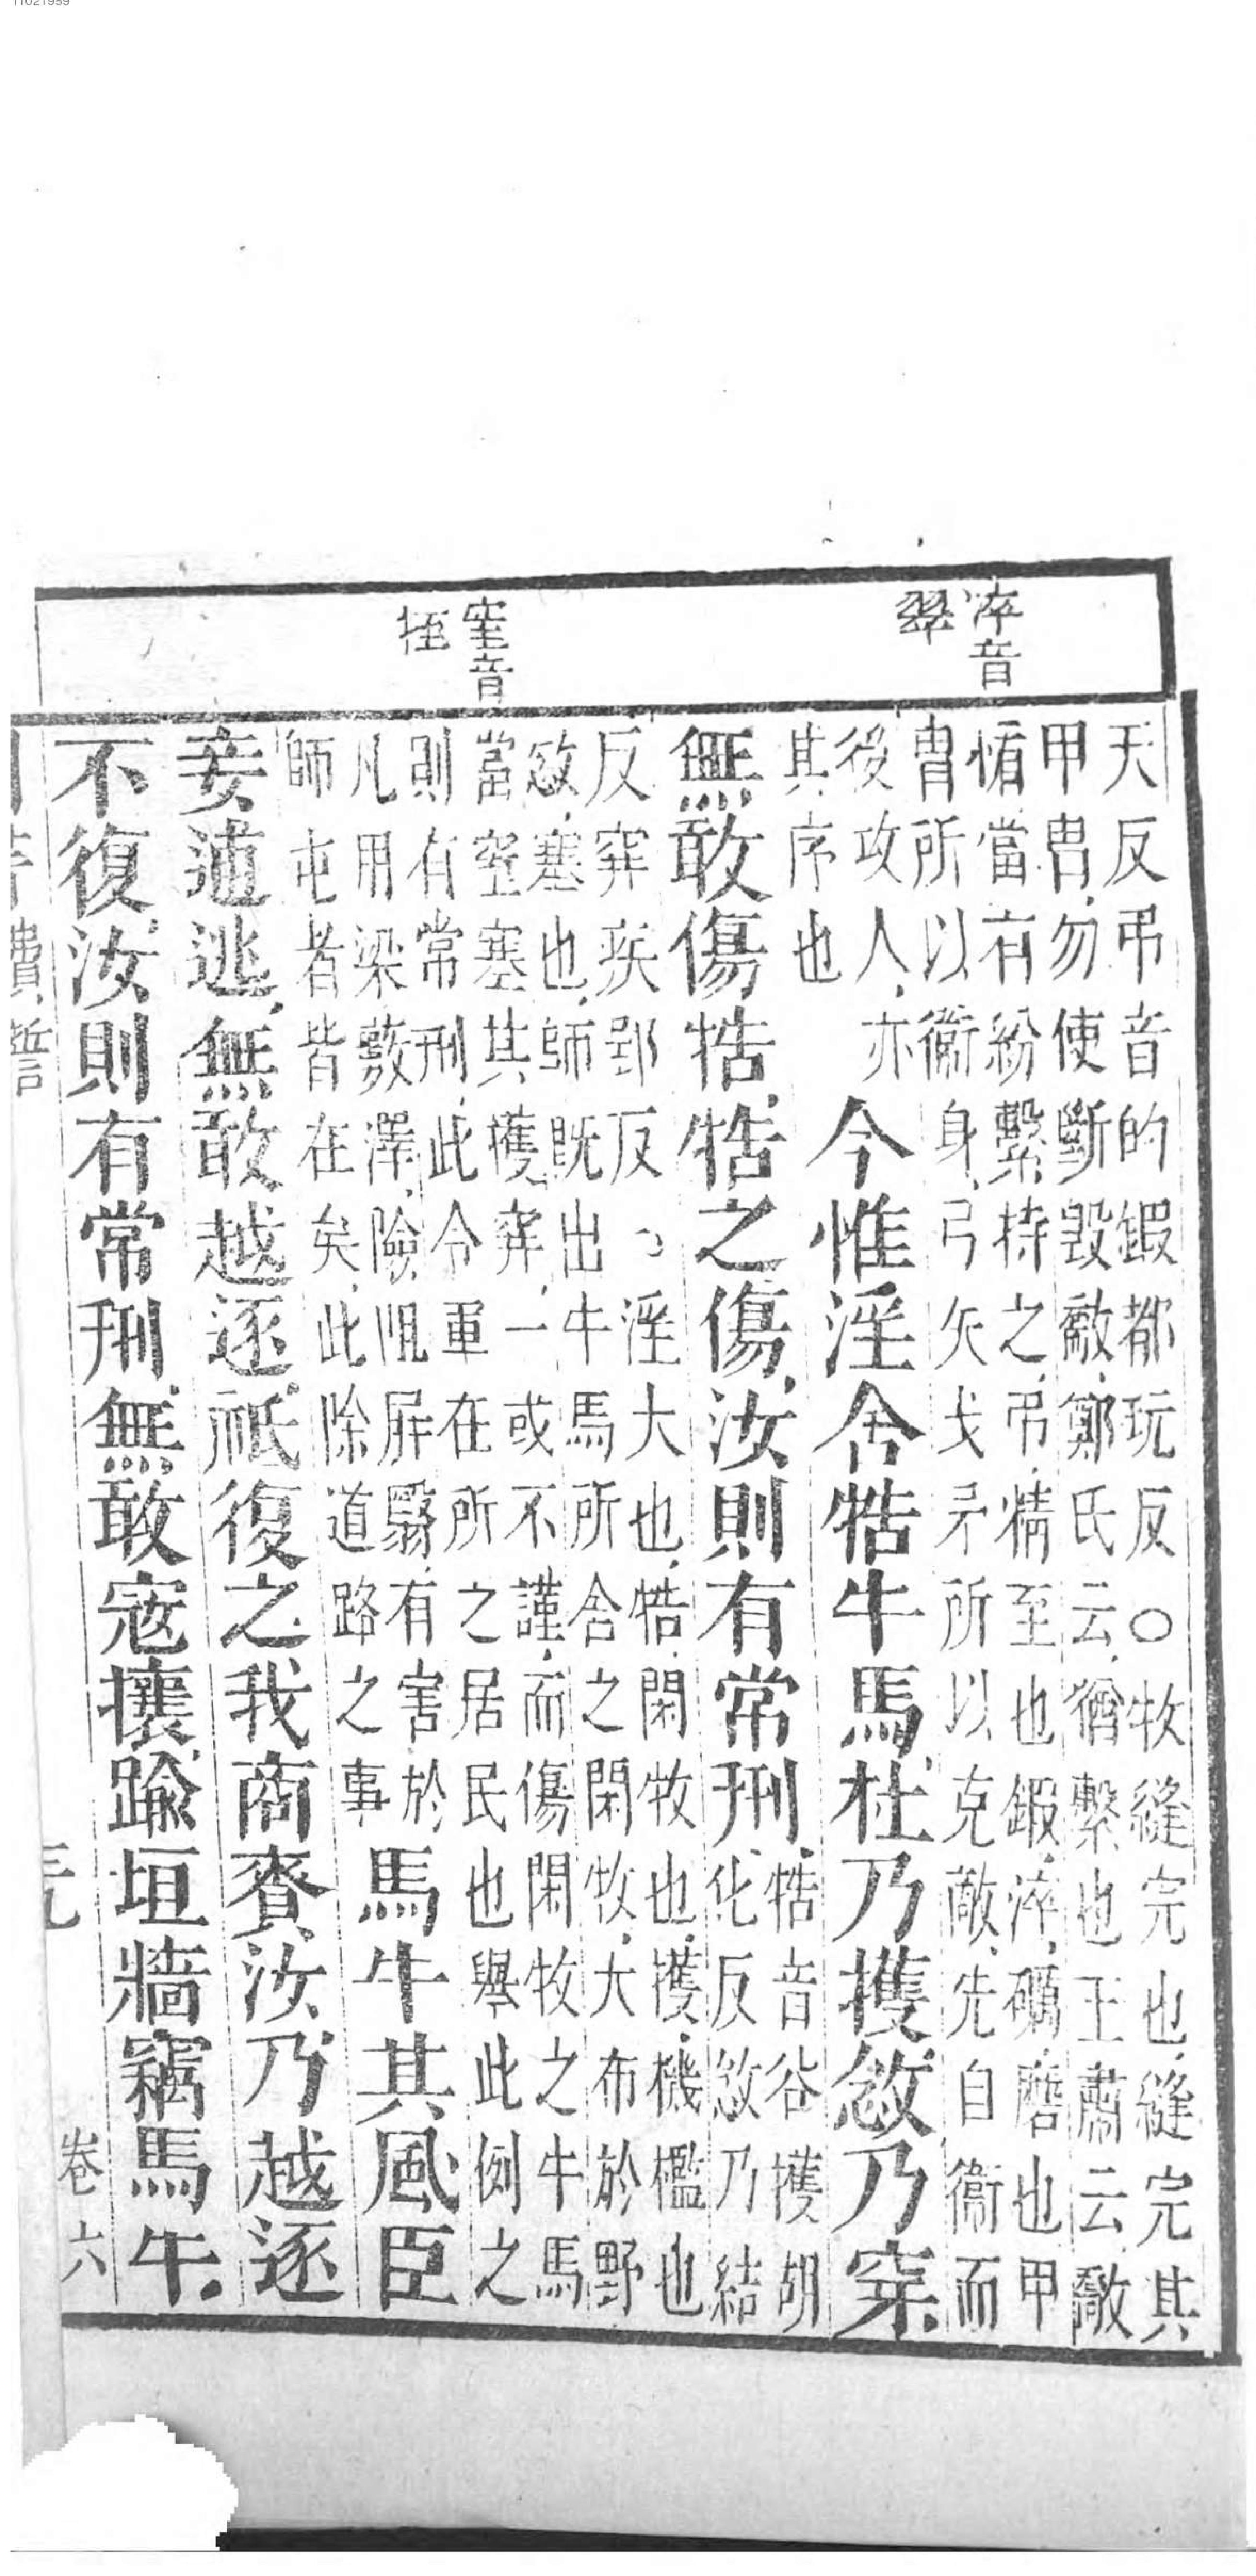 11021959
淬音
翠
窒音
桎
天反弔音的鍜都玩反○牧縫完也縫完其
甲冑勿使斷毁敿鄭氏云猶繫也王肅云敿
楯當有紛繫持之弔精至也鍜淬礪磨也甲
冑所以衞身弓矢戈矛所以克敵先自衞而
後攻人亦
其序也
今惟淫舍牿牛馬杜乃擭敜乃穽
無敢傷牿牿之傷汝則有常刑
牿音谷擭胡
化反敜乃結
反穽疾郢反○淫大也牿閑牧也擭機檻也
敜塞也師既出牛馬所舍之閑牧大布於野
當窒塞其擭穽一或不謹而傷閑牧之牛馬
則有常刑此令軍在所之居民也舉此例之
凡用梁藪澤險阻屏翳有害於
師屯者皆在矣此除道路之事
馬牛其風臣
妾逋逃無敢越逐祗復之我商賚汝乃越逐
不復汝則有常刑無敢寇攘踰垣牆竊馬牛
費誓
卷六